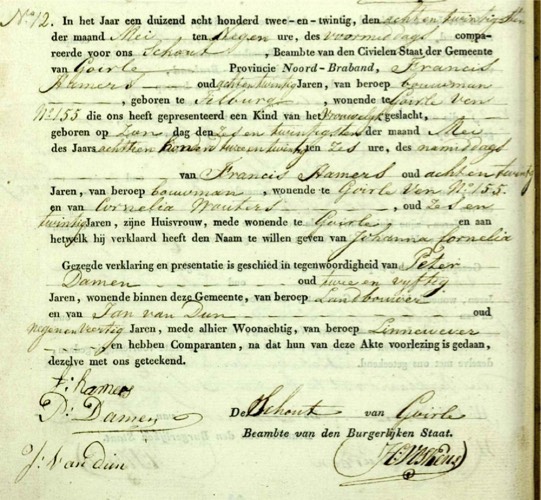 No. 12. In het Jaar een duizend acht honderd twee-en-twintig, den acht en twintigsten
der maand Mei ten Negen ure, des voormiddags compa-
reerde voor ons Schout, Beambte van den Civielen Staat der Gemeente
van Goirle Provincie Noord-Braband, Francis
Hamers oud acht en twintig Jaren, van beroep bouwman
, geboren te Tilburg, wonende te Goirle Ven
No. 155 die ons heeft gepresenteerd een Kind van het Vrouwelijk geslacht,
geboren op Zon dag den Zes en twintigsten der maand Mei
des Jaars achttien honderd twee en twintig ten Zes ure, des namiddags
van Francis Hamers oud acht en twintig
Jaren, van beroep bouwman, wonende te Goirle Ven No. 155
en van Cornelia Wouters, oud Zes en
twintig Jaren, zijne Huisvrouw, mede wonende te Goirle en aan
hetwelk hij verklaard heeft den Naam te willen geven van Johanna Cornelia
Gezegde verklaring en presentatie is geschied in tegenwoordigheid van Peter
Damen oud twee en vyftig
Jaren, wonende binnen deze Gemeente, van beroep Landbouwer
en van Jan van Dun oud
negen en veertig Jaren, mede alhier Woonachtig, van beroep Linnewever
en hebben Comparanten, na dat hun van deze Akte voorlezing is gedaan,
dezelve met ons geteekend.
F: hamers
P: Damen
De Schout van Goirle
Beambte van den Burgerlijken Staat.
J: van dun